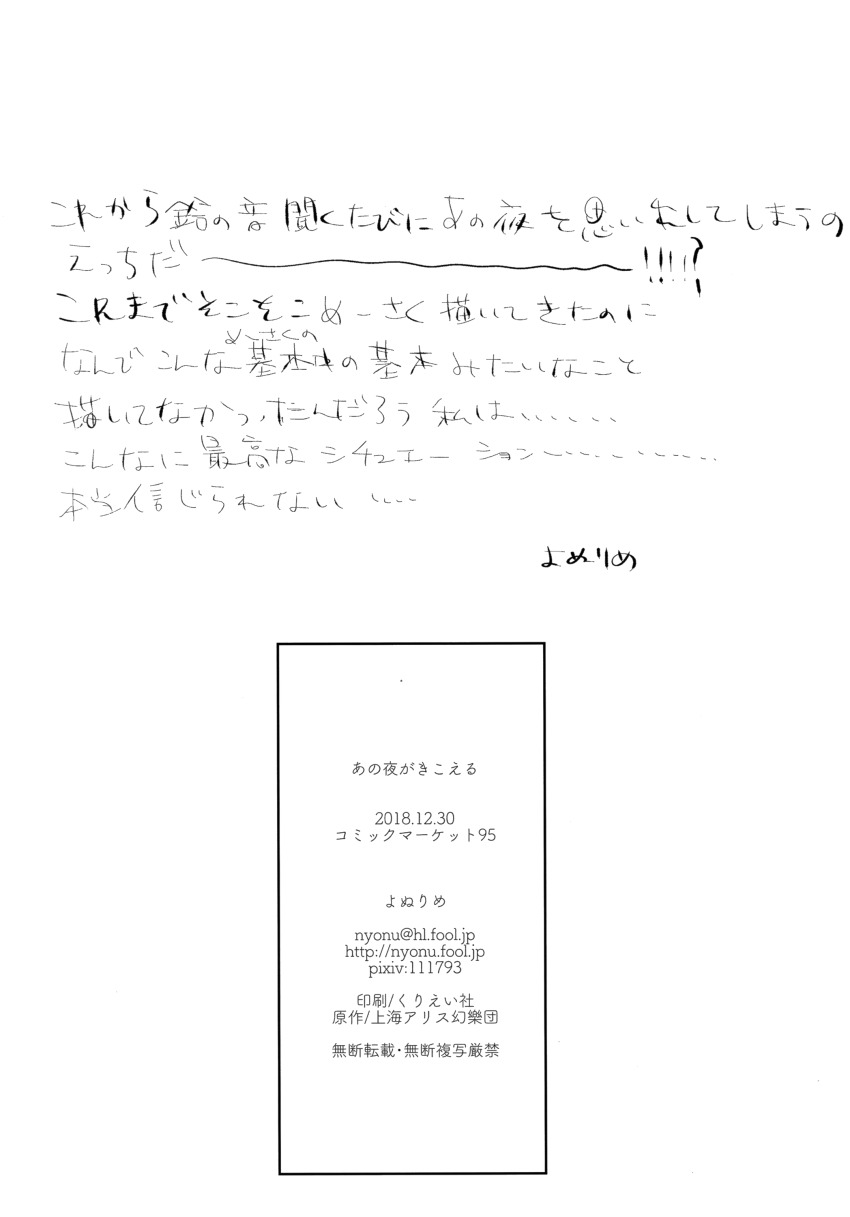 これから鈴の音聞くたびにあの夜を思い出してしまうの
えっちだ〜〜〜!!!!?
これまでそこそこめーさく描いてきたのに
めーさくの
なんでこんな基本中の基本みたいなこと
描いてなかったんだろう 私は……
こんなに最高なシチュエーション…………
本当信じられない ……
よぬりめ
あの夜がきこえる
2018.12.30
コミックマーケット95
よぬりめ
nyonu@hl.fool.jp
http://nyonu.fool.jp
pixiv:111793
印刷/くりえい社
原作/上海アリス幻樂団
無断転載・無断複写厳禁